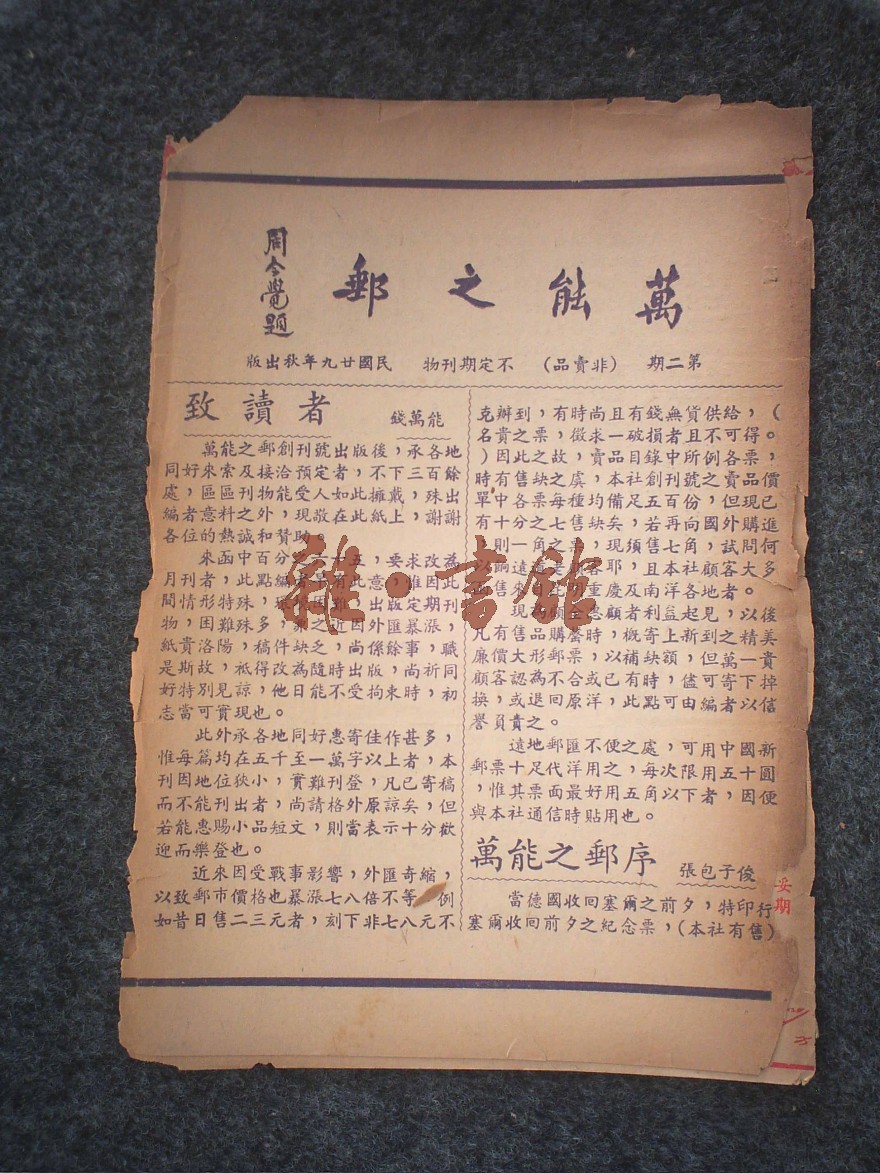 萬能之郵
周今覺題
第二期 (非賣品) 不定期刊物 民國廿九年秋出版
致讀者 錢萬能
萬能之郵創刊號出版後,承各地
同好來索及接洽預定者,不下三百餘
處,區區刊物能受人如此擁戴,殊出
編者意料之外,現敬在此紙上,謝謝
各位的熱誠和贊助。
來函中百分 十五,要求改為
月刊者,此點編者早有此意,惟因此
間情形特殊, 難,出版定期刊
物,困難殊多, 之近因外匯暴漲,
紙貴洛陽,稿件缺乏,尚係餘事,職
是斯故,祗得改為隨時出版,尚祈同
好特別見諒,他日能不受拘束時,初
志當可實現也。
此外承各地同好惠寄佳作甚多,
惟每篇均在五千至一萬字以上者,本
刊因地位狹小,實難刊登,凡已寄稿
而不能刊出者,尚請格外原諒矣,但
若能惠賜小品短文,則當表示十分歡
迎而樂登也。
近來因受戰事影響,外匯奇縮,
以致郵市價格也暴漲七八倍不等 例
如昔日售二三元者,刻下非七八元不
克辦到,有時尚且有錢無貨供給,(
名貴之票,徵求一破損者且不可得。
)因此之故,賣品目錄中所例各票,
時有售缺之虞,本社創刊號之賣品價
單中各票每種均備足五百份,但現已
有十分之七售缺矣,若再向國外購進
,則一角之票,現須售七角,試問何
以 遠道 耶,且本社顧客大多
而售來自 明重慶及南洋各地者。
現為顧全惠顧者利益起見,以後
凡有售品購罄時,概寄上新到之精美
廉價大形郵票,以補缺額,但萬一貴
顧客認為不合或已有時,儘可寄下掉
換,或退回原洋,此點可由編者以信
譽負責之。
遠地郵匯不便之處,可用中國新
郵票十足代洋用之,每次限用五十圓
,惟其票面最好用五角以下者,因便
與本社通信時貼用也。
萬能之郵序 張包子俊
當德國收回塞爾之前夕,特印行
塞爾收回前夕之紀念票,(本社有售)
妥期
雜·書館